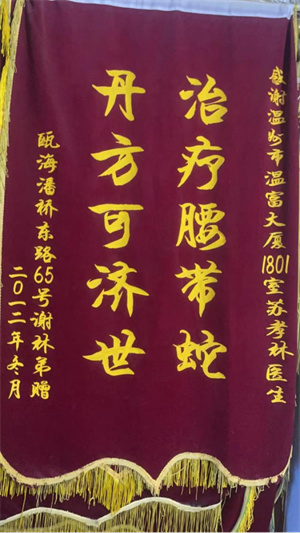 感谢温州市温富大厦1801室苏孝林医生
治疗腰带蛇
丹方可济世
瓯海潘桥东路65号谢林弟赠
二〇一二年冬月